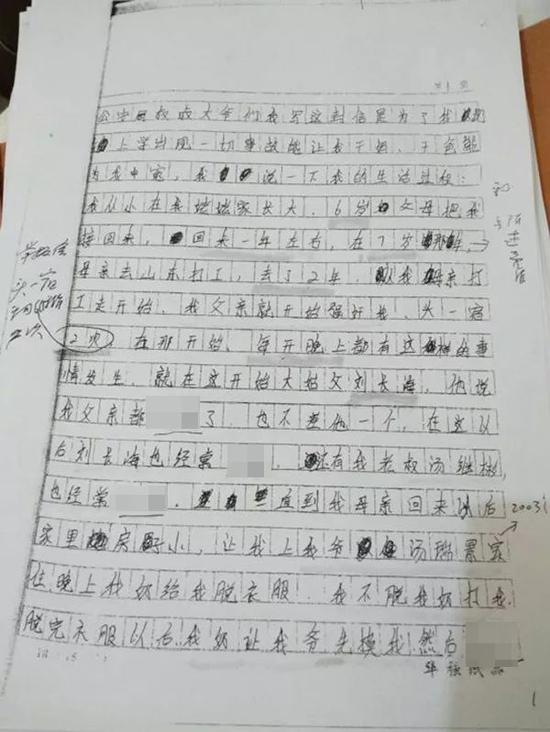 公安局叔叔大爷们我写这封信是为了我
上学出现一切事故能让我干妈、干爸能
为我申冤,我说一下我的生活过程:
我从小在我姑姑家长大,6岁父母把我
接回来,回来一年左右,在7岁那年,
母亲去山东打工,去了2年,从我母亲打
工走开始,我父亲就开始强奸我,头一宿
2次,在那开始,每天晚上都有这样的事
情发生,就在这开始大姑父刘长海,他说
我父亲都了,也不差他一个,在这以
后刘长海也经常,还有我老叔汤继彬,
也经常,一直到我母亲回来以后
2003
家里房子小,让我上我爷汤瑞景家
住晚上我奶给我脱衣服,我不脱我奶打我,
脱完衣服以后我奶让我爷先摸我然后
1